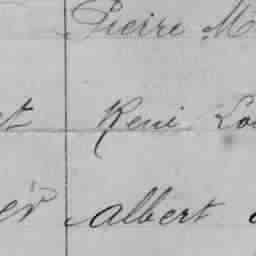 Pierre M
et René Lou
er Albert